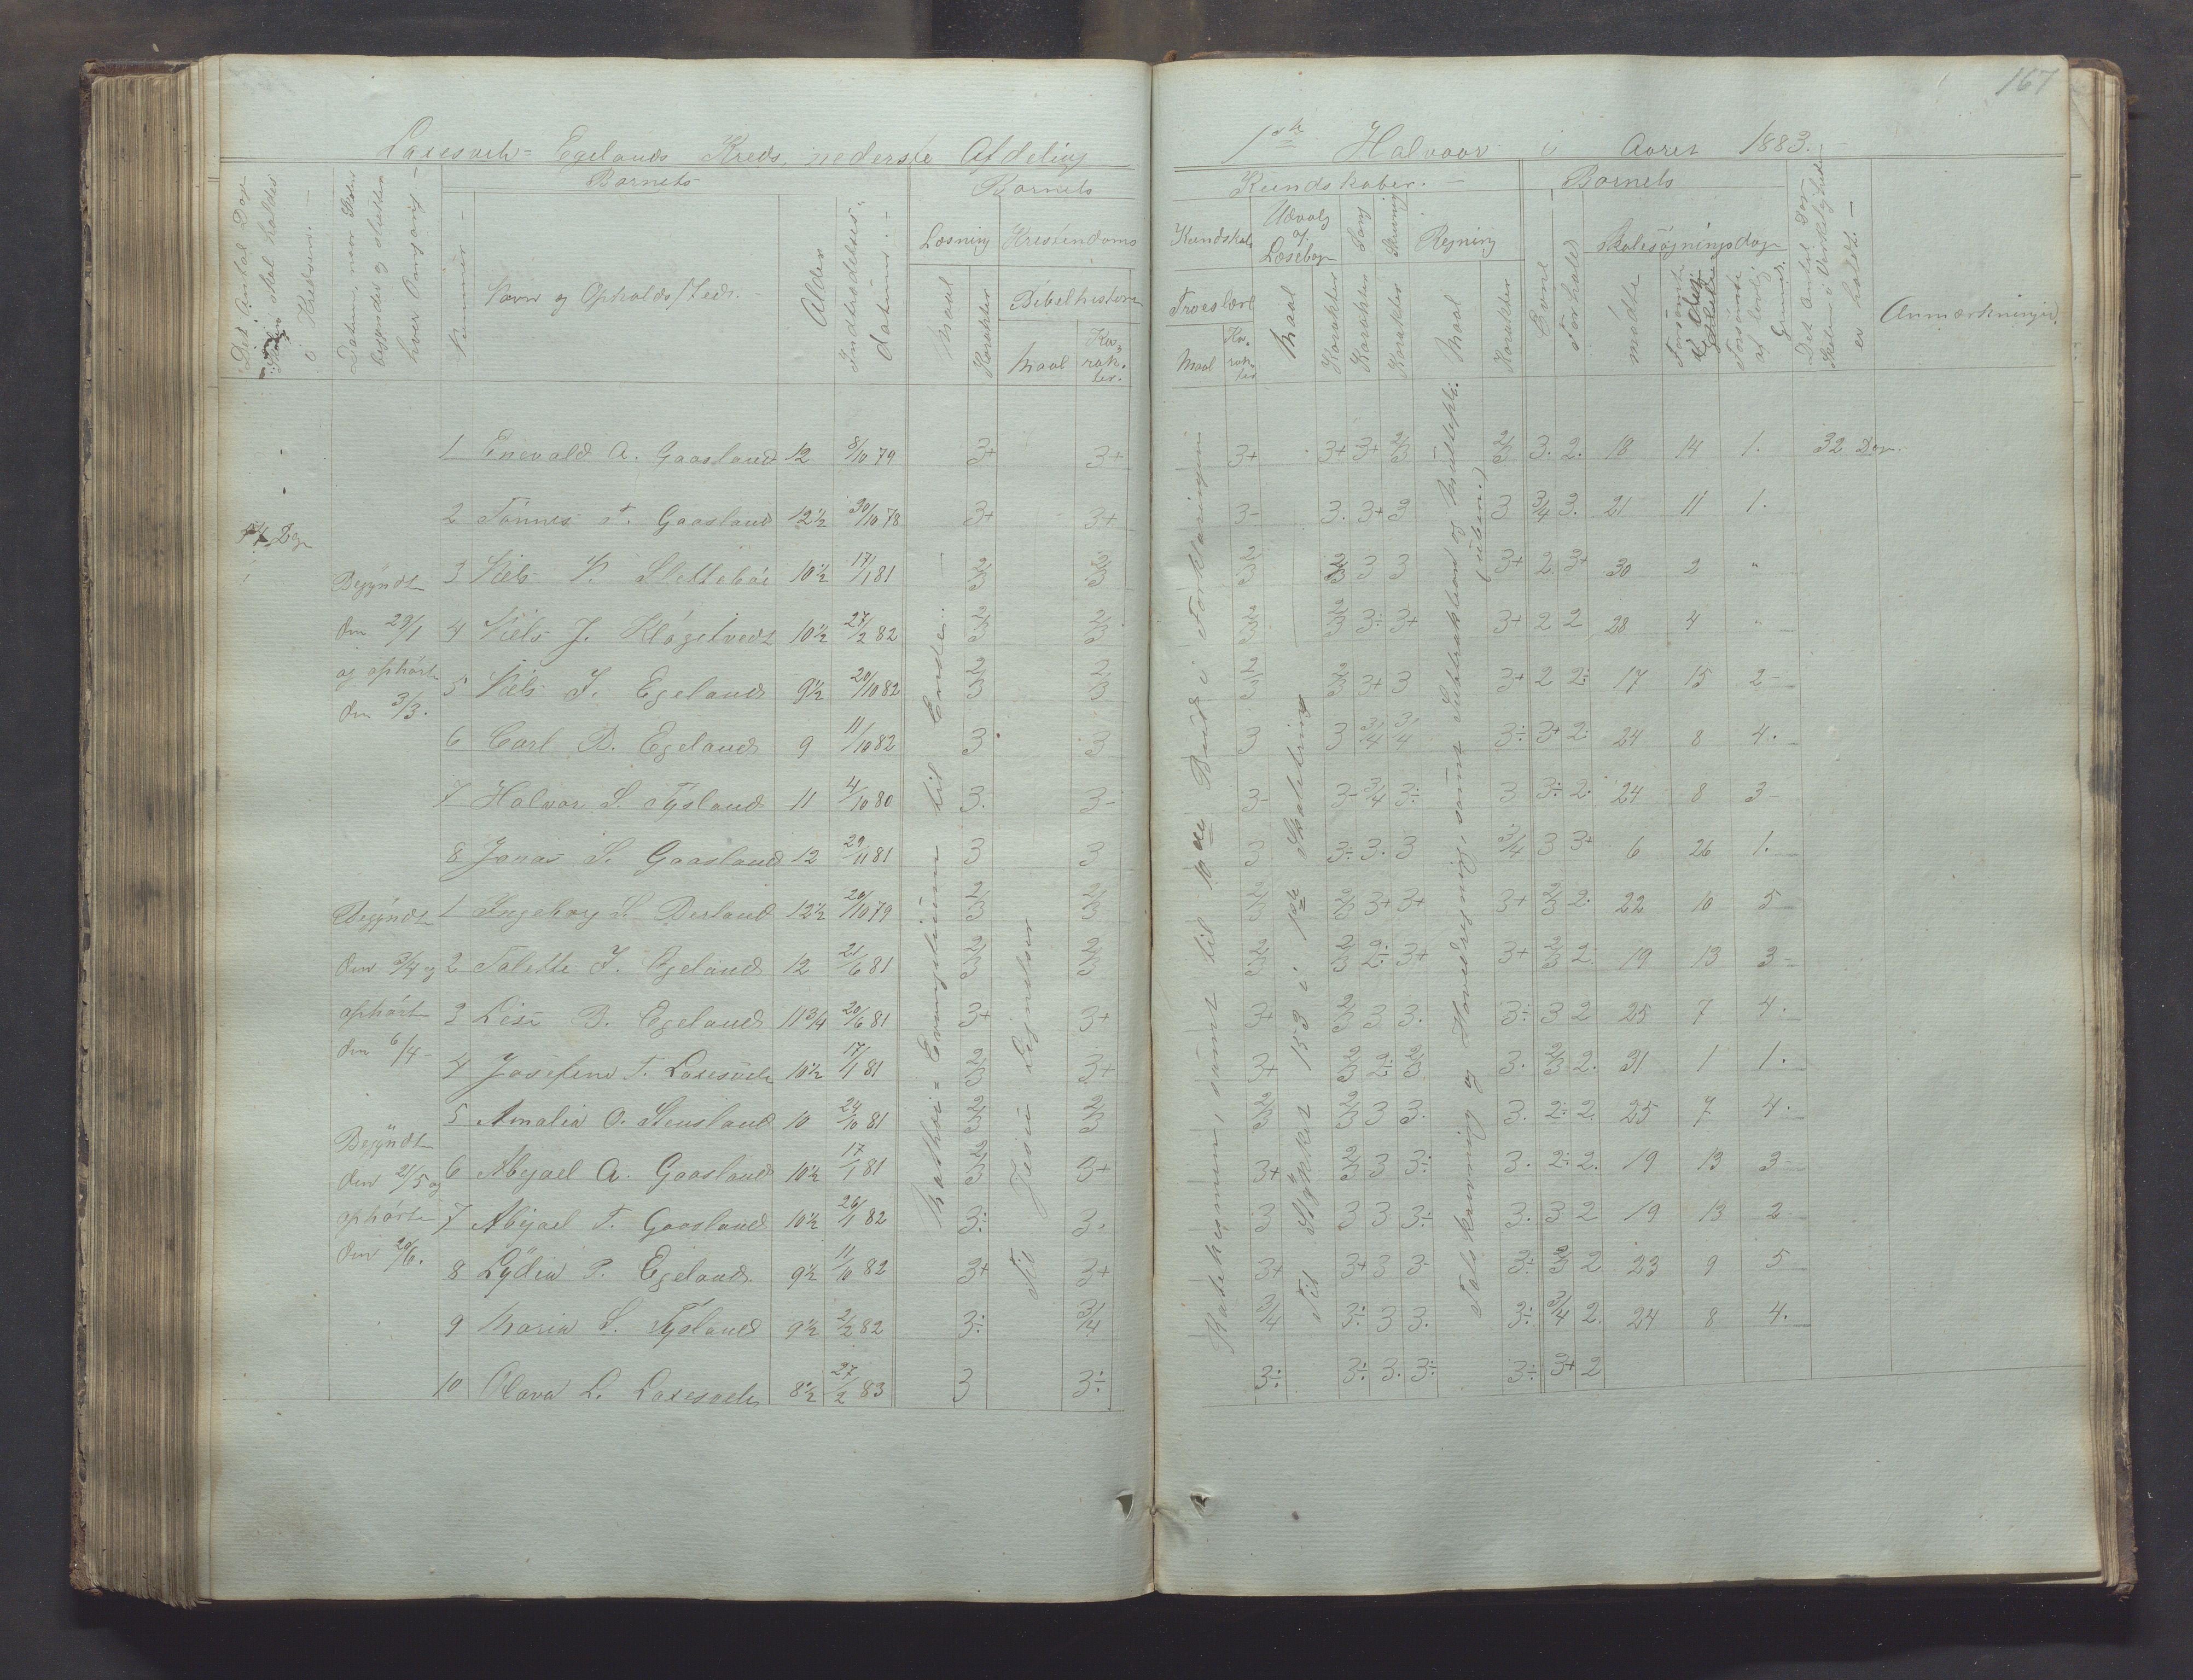 167
Laxesvels-Egelands Kreds, nederste Afdeling 1ste Halvaar i Aaret 1883.
Barnets Barnets Kundskaber. Barnets
Det Antal Dage Skolen skal holdes i Kredsen.
Datum, naar Skolen begynder og slutter hver Omgang
Nummer
Navn og Opholds/Sted.
Alder
Indtrædelses-datum.
Læsning Kristendoms Kundskab Udvalg af Læsebogen Sang Skrivning Regning
Maal Karakter Bibelhistorie Troeslære Maal Karakter Karakter Karakter Maal Karakter
Maal Karakter. Maal Karakter
Evne Forhold Skolesøgningsdage
mødte Forsømte Forsømte af lovlig Grund.
Det Antal Dage Skolen i Virkeligheden er holdt.
Anmærkninger.
1 Enevald A. Gaasland 12 8/10 79 3+ 3+ 3+ 3+ 3+ 2/3 2/3 3. 2. 18 14 1. 32 Dage.
2 Tønnes T. Gaasland 12½ 30/10 78 3+ 3+ 3- 3. 3+ 3 3 3/4 3. 21 11 1.
Dage
Begyndt
3 Niels P. Slettebøe 10½ 17/1 81 2/3 2/3 2/3 2/3 3 3 3+ 2. 3+ 30 2 "
den 29/1
4 Niels J. Kløgetvedt 10½ 27/2 82 2/3 2/3 2/3 2/3 3÷ 3+ 3+ 2 2 28 4 "
og ophørte
5 Niels J. Egeland 9½ 20/10 82 2/3 2/3 2/3 2/3 3+ 3 3+ 2 2÷ 17 15 2
den 3/3.
6 Carl B. Egeland 9 11/10 82 3 3 3 3 3/4 3/4 3÷ 3+ 2. 24 8 4.
7 Halvor S. Tysland 11 4/10 80 3. 3- 3- 3- 3/4 3÷ 3 3÷ 2. 24 8 3
8 Jonas S. Gaasland 12 29/11 81 3 3 3 3÷ 3. 3 3/4 3 3+ 6 26 1.
Begyndt
1 Ingeborg S. Birland 12½ 20/10 79 2/3 2/3 2/3 2/3 3+ 3+ 3+ 2/3 2. 22 10 5
den 3/4 og
2 Talette J. Egeland 12 21/6 81 2/3 2/3 2/3 2/3 2÷ 3+ 3+ 2/3 2. 19 13 3
ophørte
3 Lise B. Egeland 11 3/4 20/6 81 3+ 3+ 3+ 2/3 3 3. 3÷ 3 2 25 7 4.
den 6/4
4 Josefine T. Laxesvele 10½ 17/1 81 2/3 3+ 3+ 2/3 2÷ 2/3 3. 2/3 2. 31 1 1.
5 Amalia O. Stensland 10 24/10 81 2/3 2/3 2/3 2/3 3 3. 3. 2÷ 2. 25 7 4.
Begyndt
den 21/5 og
6 Abigael A. Gaasland 10½ 17/1 81 2/3 3+ 3+ 2/3 3 3÷ 3. 2÷ 2. 19 13 3
ophørte
7 Abigael T. Gaasland 10½ 26/1 82 3÷ 3. 3 3 3 3÷ 3. 3 2 19 13 2
den 20/6.
8 Lydia P. Egeland. 9½ 11/10 82 3+ 3+ 3+ 3+ 3 3- 3÷ 2/3 2 23 9 5
9 Maria S. Tysland 9½ 2/2 82 3÷ 3/4 3/4 3÷ 3 3. 3÷ 3/4 2. 24 8 4.
10 Olava L. Laxesvele 8½ 27/2 83 3 3÷ 3÷ 3÷ 3. 3÷ 3÷ 3+ 2
Mathæi Evangelium til Enden.
Til Jesu Lignelser
Katekismen, samt til 10de Bud i Forklaringen
Til Stykket 153 i 1ste Skoletrin
Talskrivning og Hovedregning, samt Subtraktion og Multipli. (uben.)